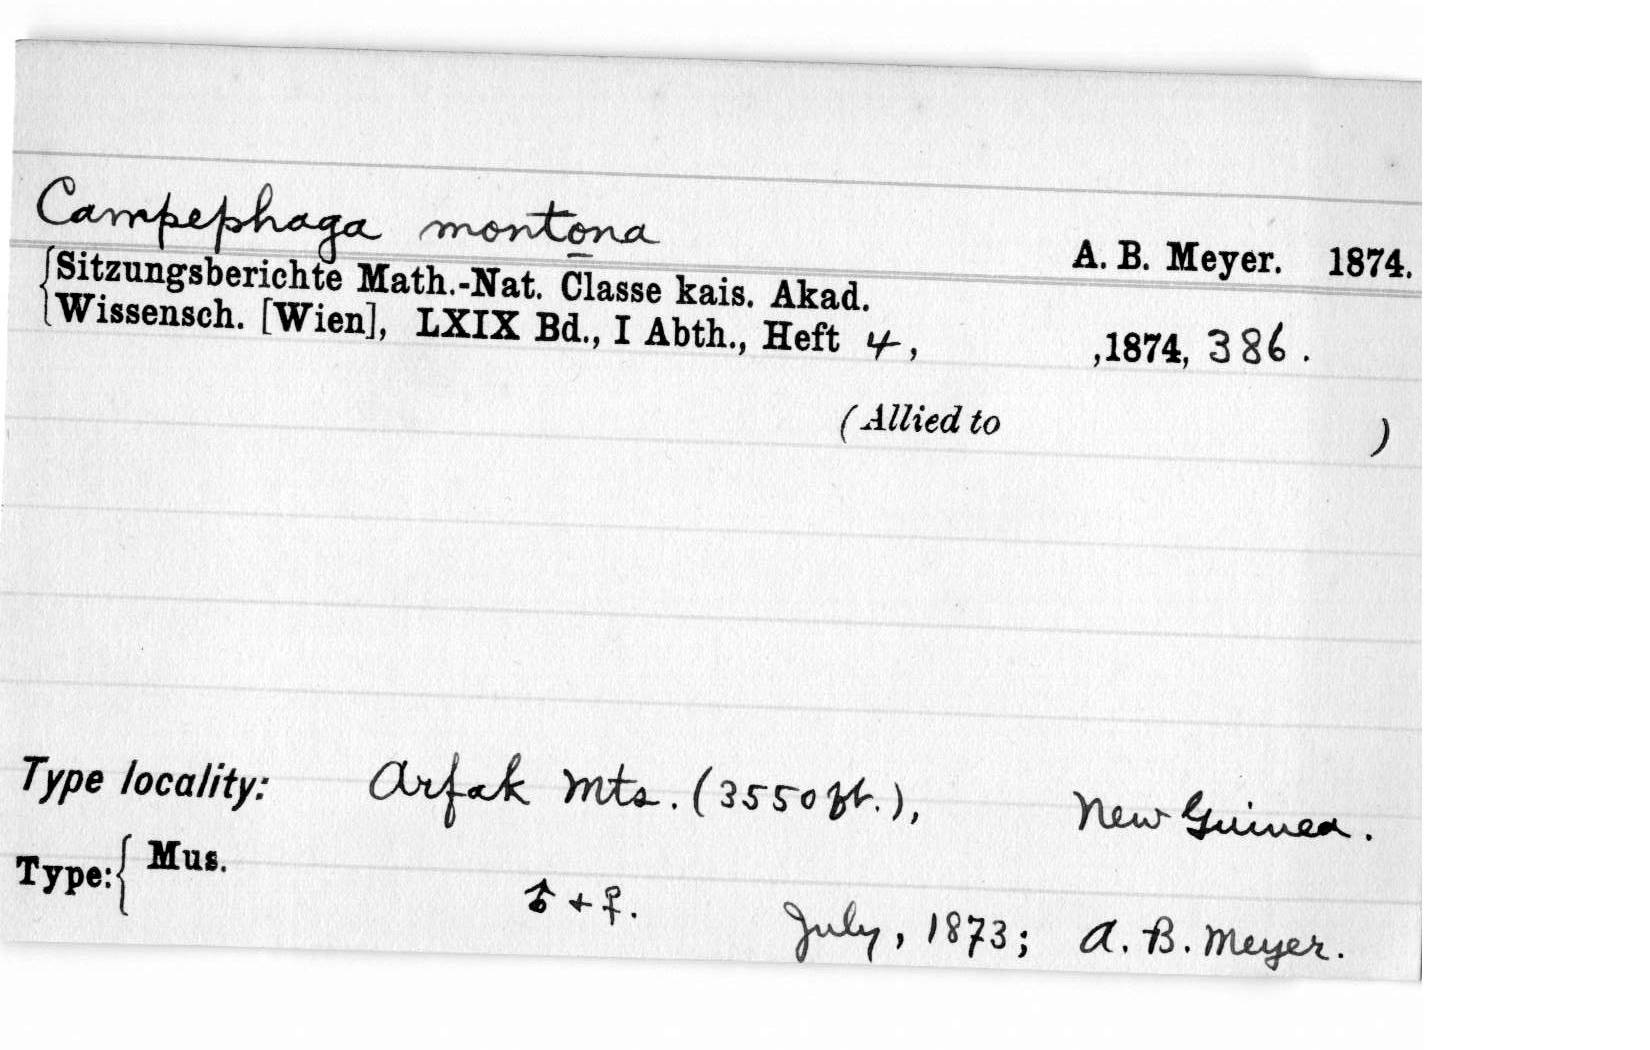 Campephaga montana A. B. Meyer. 1874.
{Sitzungsberichte Math.-Nat. Classe kais. Akad.
Wissensch. [Wien], LXIX Bd., I Abth., Heft 4, ,1874, 386.
(Allied to )
Type locality: Arfak Mts. (3550 ft.), New Guinea.
Type:{ Mus.
♂ + ♀. July, 1873; A. B. Meyer.